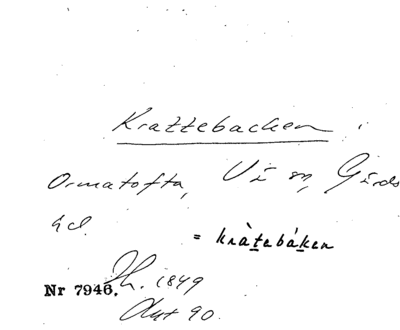 Krattebacken i
Ormatofta, Vä sn, Gärds
hd.
= kràtebàken
Nr 7946. Jh. 1849
Akt 90.